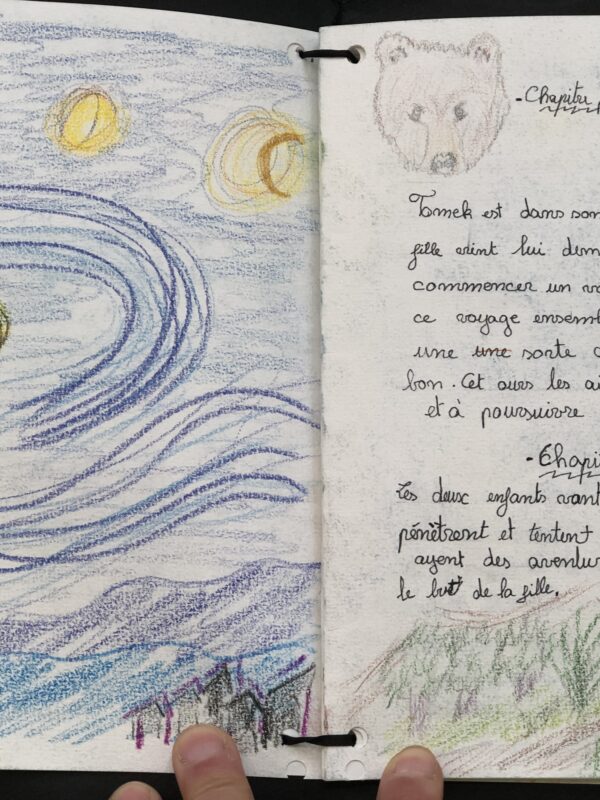 - Chapitre
Tomek est dans son
fille vient lui dem
commencer un vo
ce voyage ensemb
une une sorte d
bon. Cet ours les ai
et à poursuivre
- Chapit
Les deux enfants vont
pénètrent et tentent
ayent des aventur
le but de la fille.